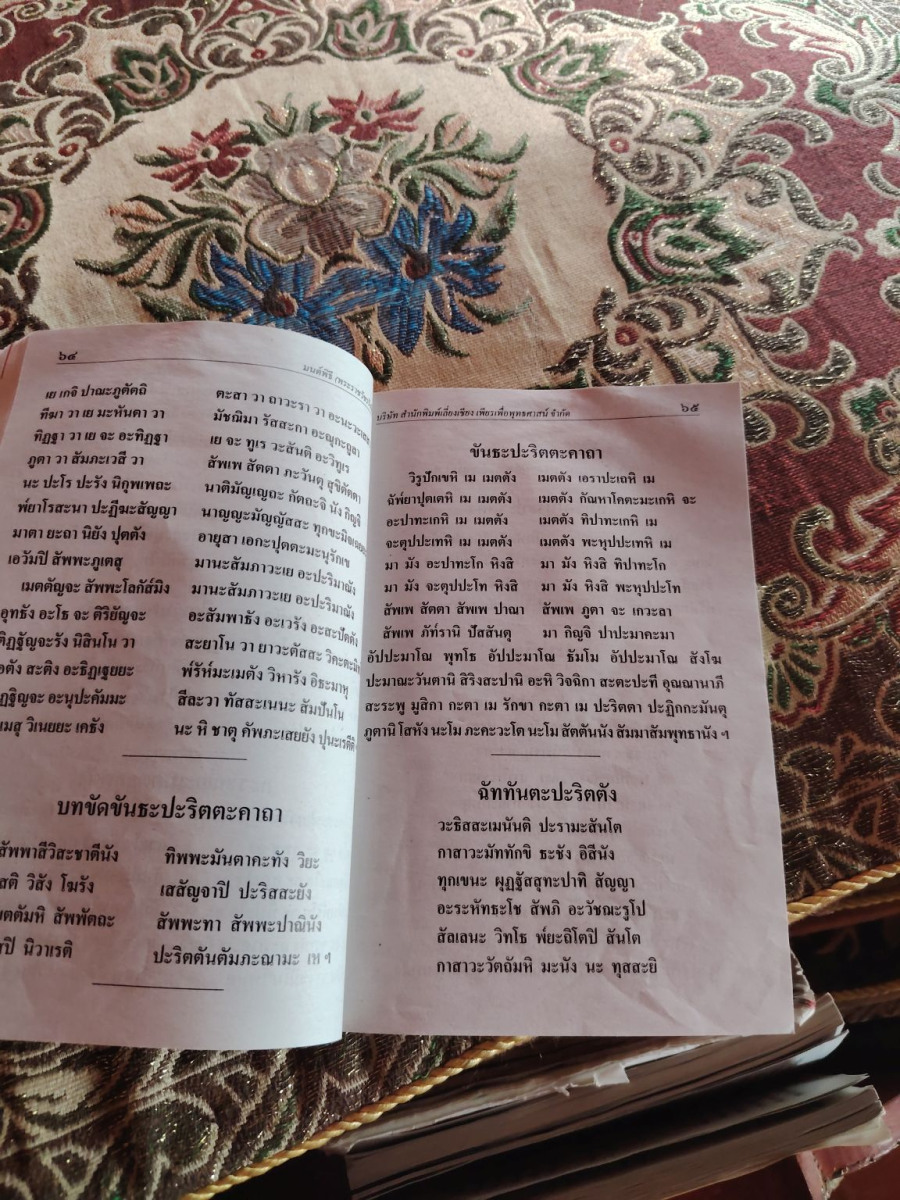 ๖๔
มนต์พิธี (พระราช
เย เกจิ ปาณะภูตัตถิ ตะสา วา ถาวะรา วา อะนะวะเสสา
ทีฆา วา เย มะหันตา วา มัชฌิมา รัสสะกา อะณุกะถูลา
ทิฏฐา วา เย จะ อะทิฏฐา เย จะ ทูเร วะสันติ อะวิทูเร
ภูตา วา สัมภะเวสี วา สัพเพ สัตตา ภะวันตุ สุขิตัตตา
นะ ปะโร ปะรัง นิกุพเพถะ นาติมัญเญถะ กัตถะจิ นัง กิญจิ
พ์ยาโรสะนา ปะฏีฆะสัญญา นาญญะมัญญัสสะ ทุกขะมิจ
มาตา ยะถา นิยัง ปุตตัง อายุสา เอกะปุตตะมะนุรักเข
เอวัมปิ สัพพะภูเตสุ มานะสัมภาวะเย อะปะริมาณัง
เมตตัญจะ สัพพะโลกัส์มิง มานะสัมภาวะเย อะปะริมาณัง
อุทธัง อะโธ จะ ติริยัญจะ อะสัมพาธัง อะเวรัง อะสะปัตตัง
ติฏฐัญจะรัง นิสินโน วา สะยาโน วา ยาวะตัสสะ วิคะตะมิ
ตัง สะติง อะธิฏเฐยยะ พ์รัห์มะเมตัง วิหารัง อิธะมาหุ
ฏฐิญจะ อะนุปะคัมมะ สีละวา ทัสสะเนนะ สัมปันโน
เมสุ วิเนยยะ เคธัง นะ หิ ชาตุ คัพภะเสยยัง ปุนะเรตีติ ฯ
บทขัดขันธะปะริตตะคาถา
สัพพาสีวิสะชาตีนัง ทิพพะมันตาคะทัง วิยะ
สติ วิสัง โฆรัง เสสัญจาปิ ปะริสสะยัง
ตตัมหิ สัพพัตถะ สัพพะทา สัพพะปาณินัง
ปิ นิวาเรติ ปะริตตันตัมภะณามะ เห ฯ
บริษัท สำนักพิมพ์เลี่ยงเชียง เพียรเพื่อพุทธศาสน์ จำกัด ๖๕
ขันธะปะริตตะคาถา
วิรูปักเขหิ เม เมตตัง เมตตัง เอราปะเถหิ เม
ฉัพ์ยาปุตเตหิ เม เมตตัง เมตตัง กัณหาโคตะมะเกหิ จะ
อะปาทะเกหิ เม เมตตัง เมตตัง ทิปาทะเกหิ เม
จะตุปปะเทหิ เม เมตตัง เมตตัง พะหุปปะเทหิ เม
มา มัง อะปาทะโก หิงสิ มา มัง หิงสิ ทิปาทะโก
มา มัง จะตุปปะโท หิงสิ มา มัง หิงสิ พะหุปปะโท
สัพเพ สัตตา สัพเพ ปาณา สัพเพ ภูตา จะ เกวะลา
สัพเพ ภัท์รานิ ปัสสันตุ มา กิญจิ ปาปะมาคะมา
อัปปะมาโณ พุทโธ อัปปะมาโณ ธัมโม อัปปะมาโณ สังโฆ
ปะมาณะวันตานิ สิริงสะปานิ อะหิ วิจฉิกา สะตะปะที อุณณานาภี
สะระพู มูสิกา กะตา เม รักขา กะตา เม ปะริตตา ปะฏิกกะมันตุ
ภูตานิ โสหัง นะโม ภะคะวะโต นะโม สัตตันนัง สัมมาสัมพุทธานัง ฯ
ฉัททันตะปะริตตัง
วะธิสสะเมนันติ ปะรามะสันโต
กาสาวะมัททักขิ ธะชัง อิสีนัง
ทุกเขนะ ผุฏฐัสสุทะปาทิ สัญญา
อะระหัทธะโช สัพภิ อะวัชฌะรูโป
สัลเลนะ วิทโธ พ์ยะถิโตปิ สันโต
กาสาวะวัตถัมหิ มะนัง นะ ทุสสะยิ